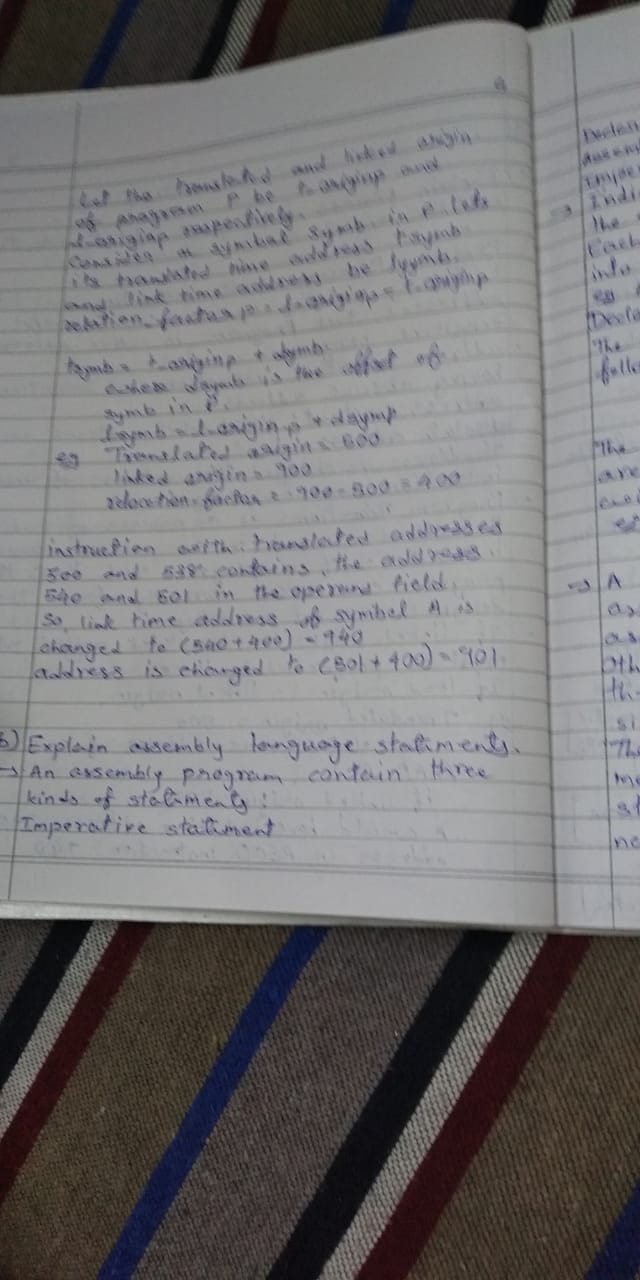 Let the translated and linked origin
of program P be t-originp and
l-originp respectively.
Consider a symbol symb in P. Lets
its translated time address tsymb
and link time address be lsymb.
relation-factor p = l-originp = t-originp
tsymb = t-originp + dsymb
where dsymb is the offset of
symb in P.
lsymb = l-originp + dsymp
eg Translated origin = 500
linked origin = 900
relocation-factor = 900-500 = 400
instruction with translated addresses
500 and 538 contains the address
540 and 501 in the operand field.
so, link time address of symbol A is
changed to (540+400) = 940
address is changed to (501+400) = 901.
Explain assembly language statements.
→ An assembly program contain three
kinds of statements:
Imperative statiment
⇒ Indi
The
Each
into
eg
Decla
The
follo
The
are
⇒ A
as
Oth
thi
si
The
me
st
ne